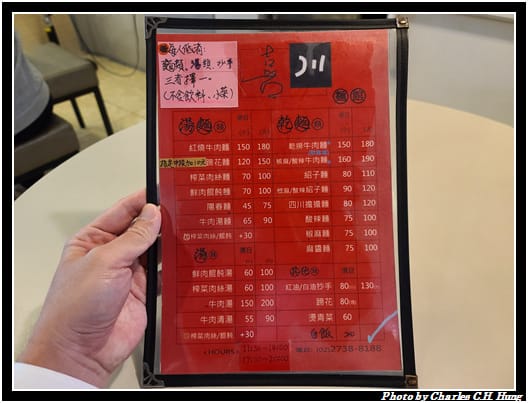 每人低消:
麵類、湯類、抄手
三者擇一。
(不含飲料、小菜)
川
湯麵類 項目
紅燒牛肉麵 150 180
榜花麵 120 150
榨菜肉絲麵 70 100
鮮肉餛飩麵 70 100
陽春麵 45 75
牛肉湯麵 65 90
加榨菜肉絲/餛飩 +30
湯類 項目
鮮肉餛飩湯 60 100
榨菜肉絲湯 60 100
牛肉湯 150 200
牛肉清湯 55 90
榨菜肉絲/餛飩 +30
乾麵類 項目
乾拌牛肉麵 150 180
椒麻/酸辣牛肉麵 160 190
紹子麵 80 110
椒麻/酸辣紹子麵 90 120
四川擔擔麵 80 120
酸辣麵 75 100
椒麻麵 75 100
麻醬麵 75 100
其他類 項目
紅油/白油抄手 80 130
髈花 80
燙青菜 60
白飯
(HOURS)
電話: (02)2738-8188
Photo by Charles C.H. Hung